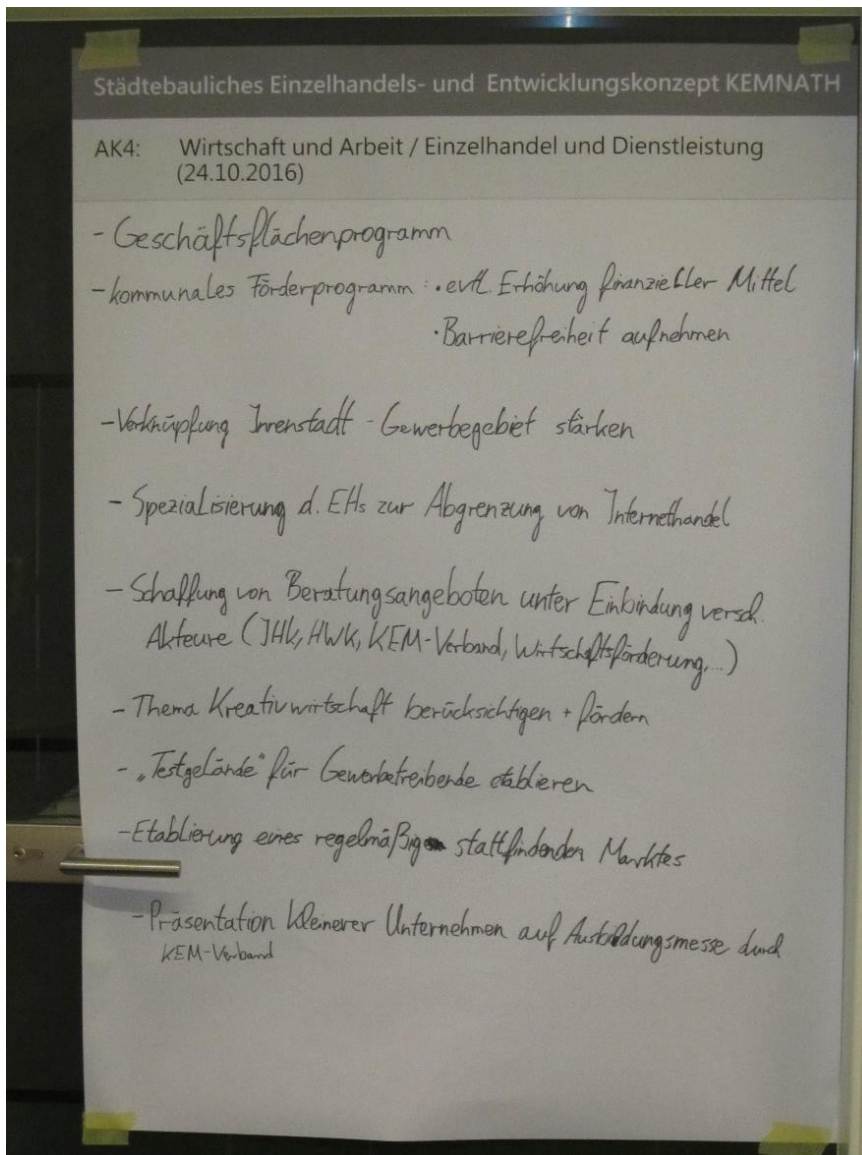 Städtebauliches Einzelhandels- und Entwicklungskonzept KEMNATH
AK4: Wirtschaft und Arbeit / Einzelhandel und Dienstleistung
(24.10.2016)
- Geschäftsflächenprogramm
- kommunales Förderprogramm : • evtl. Erhöhung finanzieller Mittel
• Barrierefreiheit aufnehmen
- Verknüpfung Innenstadt - Gewerbegebiet stärken
- Spezialisierung d. EHs zur Abgrenzung von Internethandel
- Schaffung von Beratungsangeboten unter Einbindung versch.
Akteure (IHK, HWK, KEM-Verband, Wirtschaftsförderung,...)
- Thema Kreativwirtschaft berücksichtigen + fördern
- „Testgelände" für Gewerbetreibende etablieren
- Etablierung eines regelmäßig stattfindenden Marktes
- Präsentation kleinerer Unternehmen auf Ausbildungsmesse durch
KEM-Verband